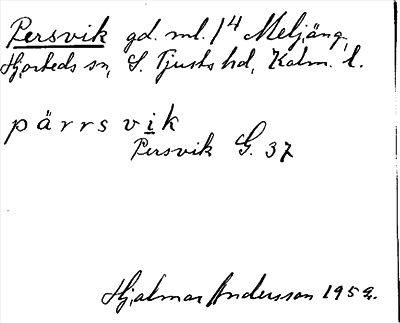 Persvik gd. ml. 1⁴ Meljäng,
Hjorteds sn, S. Tjusts hd, Kalm. l.
pärrsvik
Persvik G. 37
Hjalmar Andersson